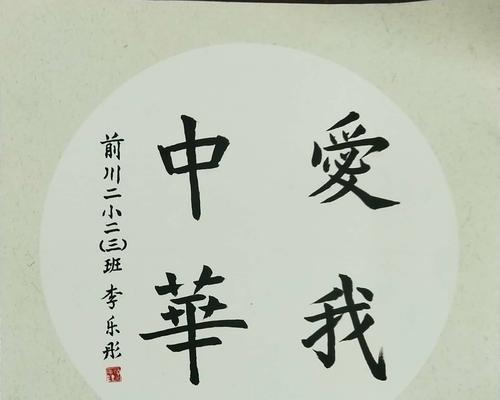 愛我
中華
前川二小二(三)班 李乐彤